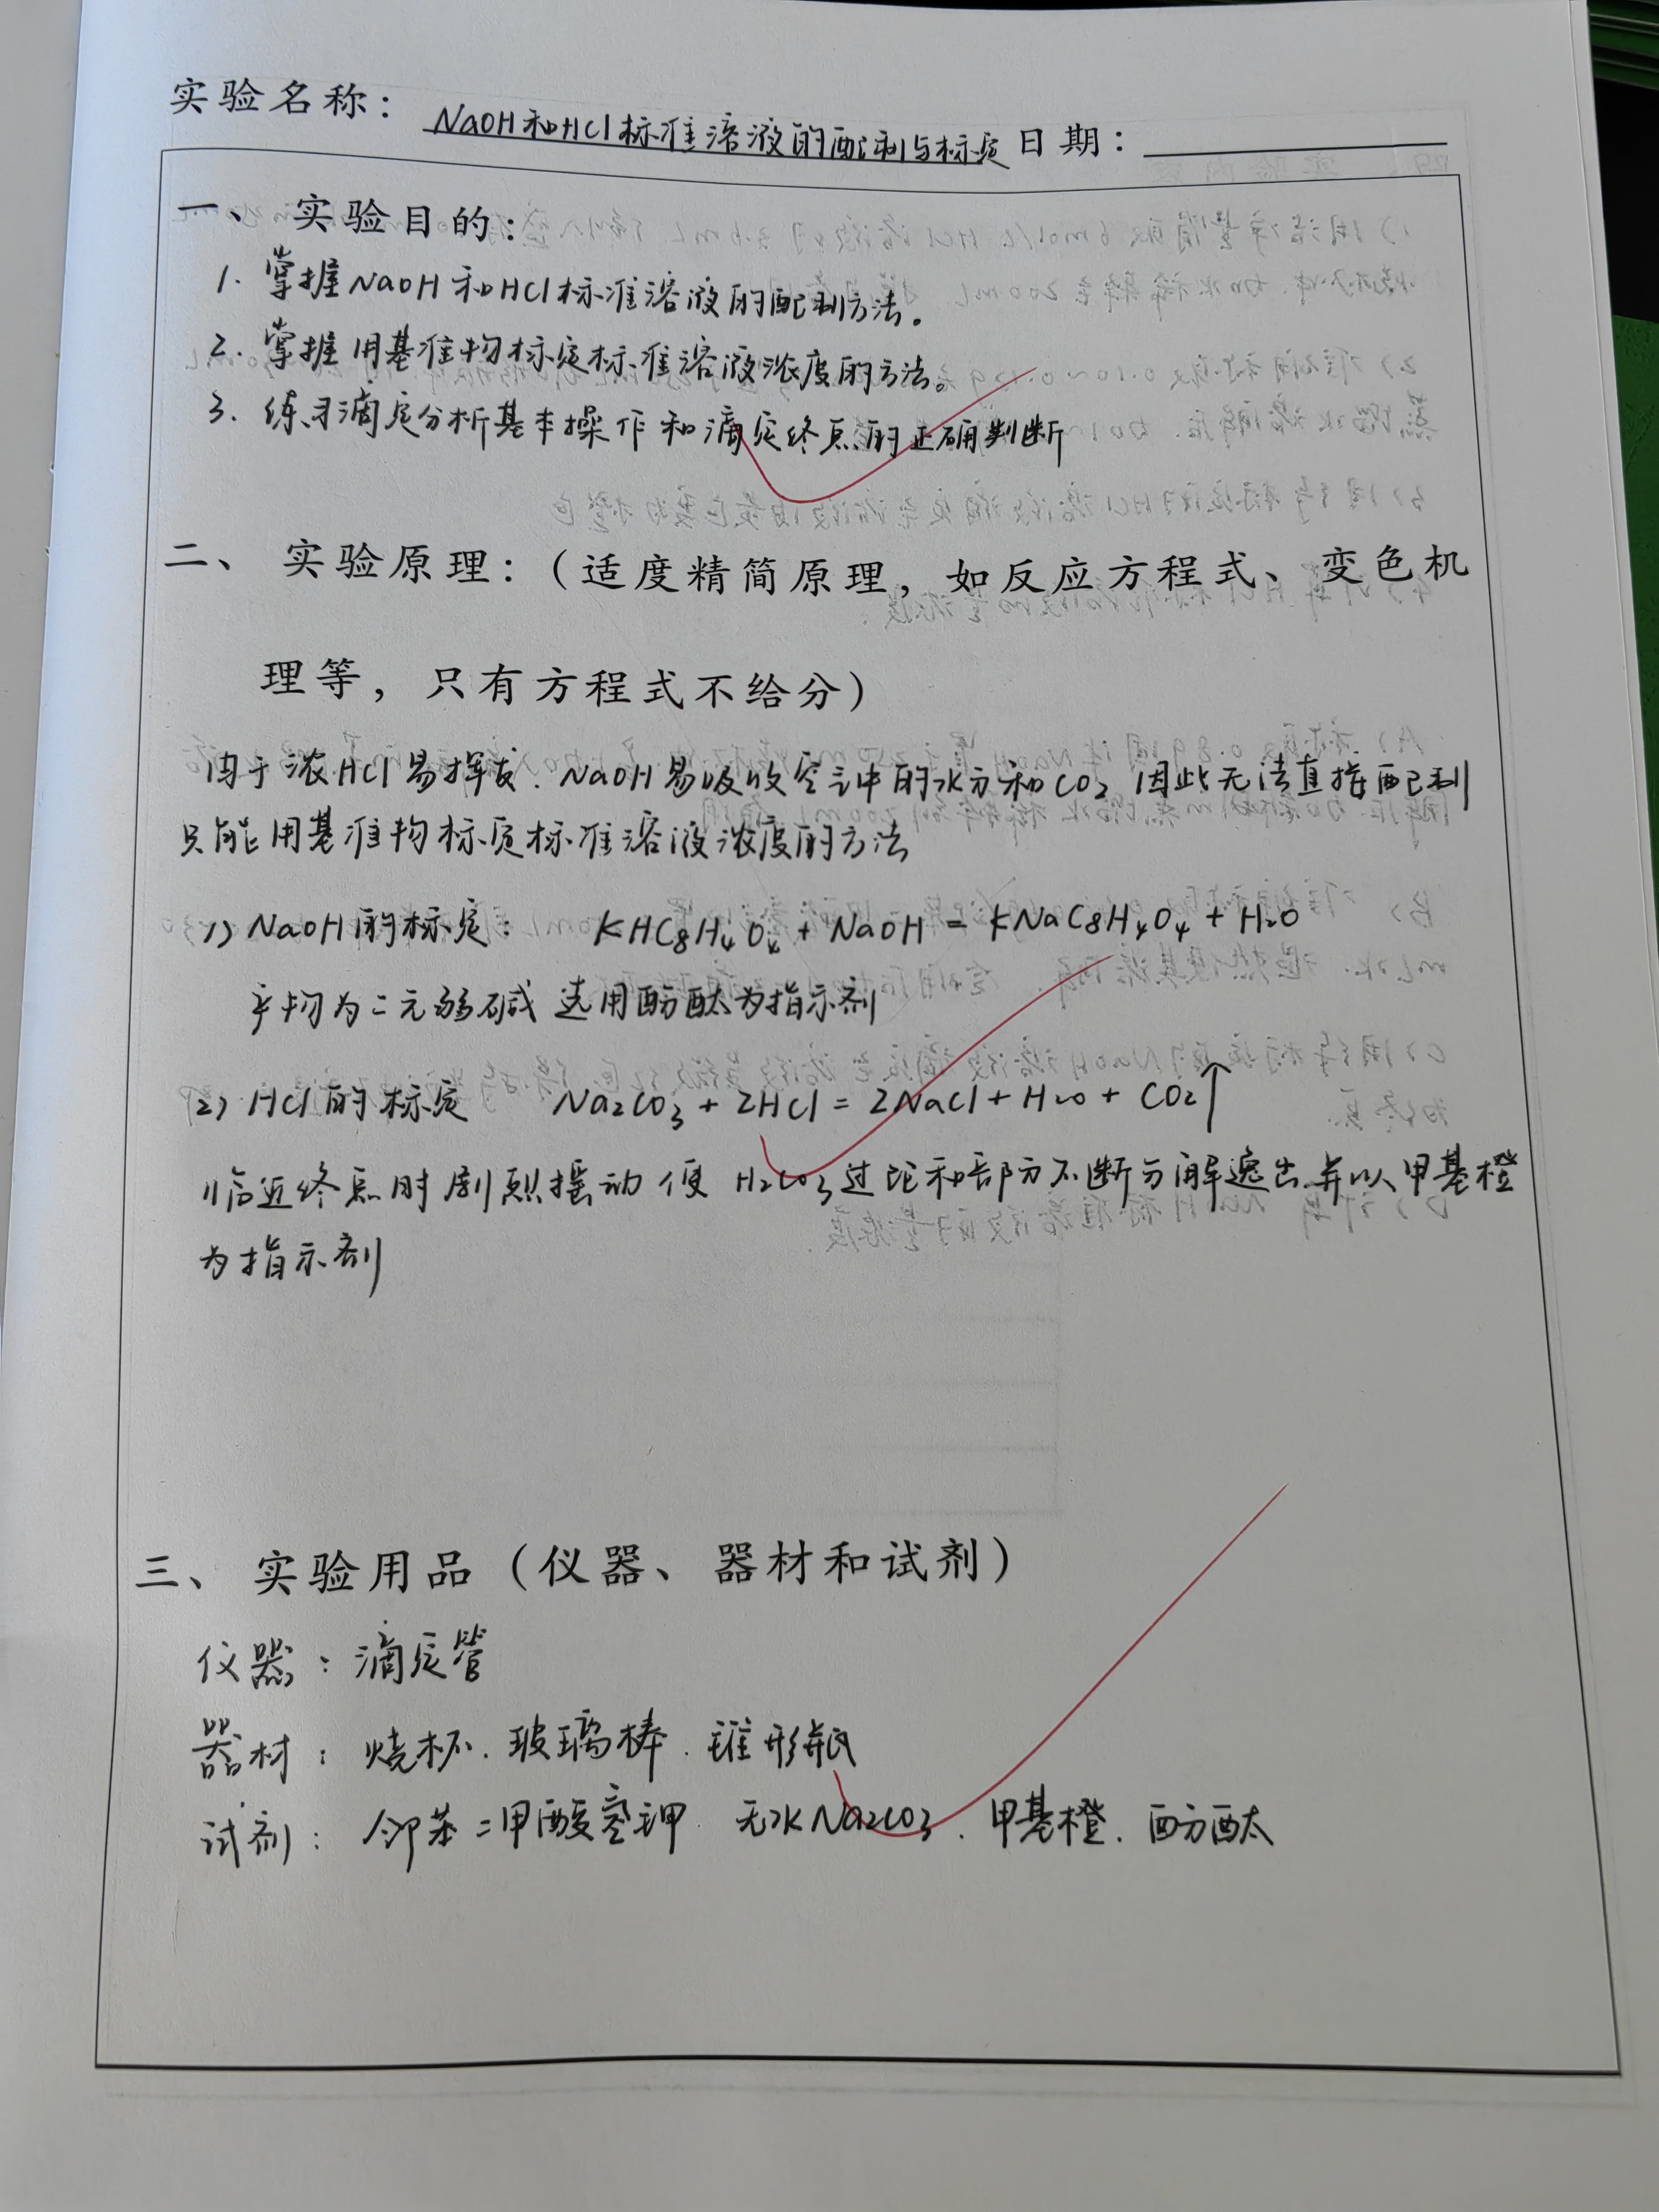 实验名称： NaOH和HCl标准溶液的配制与标定 日期：
一、 实验目的：
1. 掌握NaOH和HCl标准溶液的配制方法。
2. 掌握用基准物标定标准溶液浓度的方法。
3. 练习滴定分析基本操作和滴定终点的正确判断
二、 实验原理：（适度精简原理，如反应方程式、变色机
理等，只有方程式不给分）
由于浓HCl易挥发.NaOH易吸收空气中的水分和CO₂ 因此无法直接配制
只能用基准物标定标准溶液浓度的方法
1) NaOH的标定： KHC₈H₄O₄ + NaOH = KNaC₈H₄O₄ + H₂O
产物为二元弱碱 选用酚酞为指示剂
(2) HCl的标定 Na₂CO₃ + 2HCl = 2NaCl + H₂O + CO₂↑
临近终点时剧烈摇动使H₂CO₃过饱和部分不断分解逸出.并以甲基橙
为指示剂
三、 实验用品（仪器、器材和试剂）
仪器：滴定管
器材：烧杯.玻璃棒.锥形瓶
试剂：邻苯二甲酸氢钾. 无水Na₂CO₃.甲基橙.酚酞